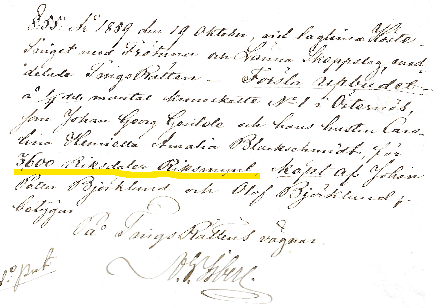 §55. År 1859 den 19 Oktober, vid lagtima Höste
Tinget med Frötuna och Länna Skeppslag, med
delade Tings Rätten Första upbudet
å 1/8 dels mantal kronoskatte N:1 i Östernäs,
som Johan Georg och hans hustru Caro
lina Henrietta Amalia Blanckschmidt, för
3,600 Riksdaler Riksmynt, köpt af Johan
Petter Björklund och Olof Björklund;
betygar
På Tings Rättens vägnar